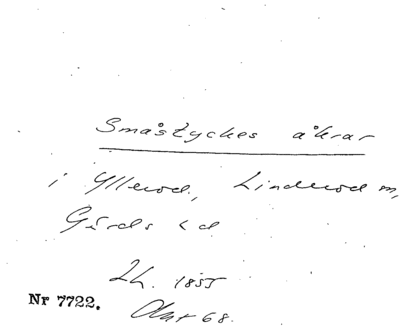 Småstyckes åkrar
i Yllerod, Linderod m,
Gärds hd
Lh. 1855
Nr 7722.
68.